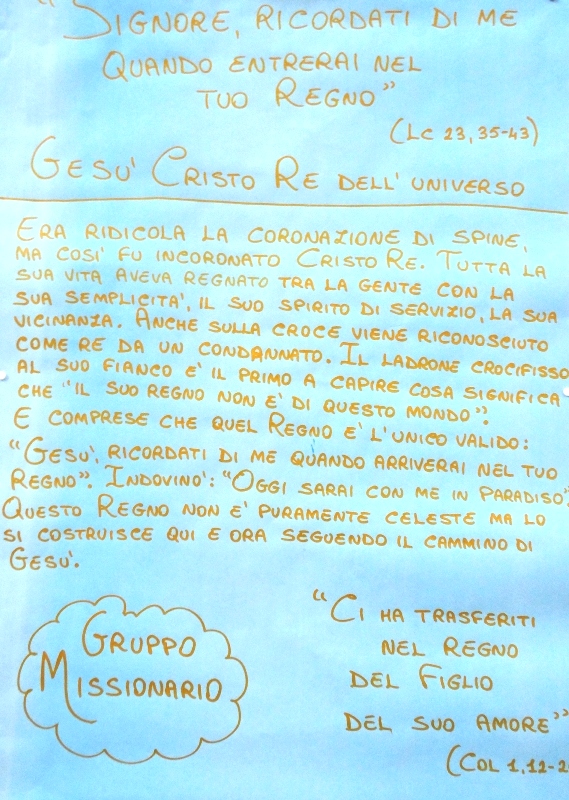 "SIGNORE, RICORDATI DI ME
QUANDO ENTRERAI NEL
TUO REGNO"
(LC 23,35-43)
GESU' CRISTO RE DELL'UNIVERSO
ERA RIDICOLA LA CORONAZIONE DI SPINE,
MA COSI' FU INCORONATO CRISTO RE. TUTTA LA
SUA VITA AVEVA REGNATO TRA LA GENTE CON LA
SUA SEMPLICITA', IL SUO SPIRITO DI SERVIZIO, LA SUA
VICINANZA. ANCHE SULLA CROCE VIENE RICONOSCIUTO
COME RE DA UN CONDANNATO. IL LADRONE CROCIFISSO
AL SUO FIANCO E' IL PRIMO A CAPIRE COSA SIGNIFICA
CHE "IL SUO REGNO NON E' DI QUESTO MONDO".
E COMPRESE CHE QUEL REGNO E' L'UNICO VALIDO:
"GESU', RICORDATI DI ME QUANDO ARRIVERAI NEL TUO
REGNO". INDOVINO': "OGGI SARAI CON ME IN PARADISO".
QUESTO REGNO NON E' PURAMENTE CELESTE MA LO
SI COSTRUISCE QUI E ORA SEGUENDO IL CAMMINO DI
GESU'.
GRUPPO
MISSIONARIO
"CI HA TRASFERITI
NEL REGNO
DEL FIGLIO
DEL SUO AMORE"
(COL 1,12-2